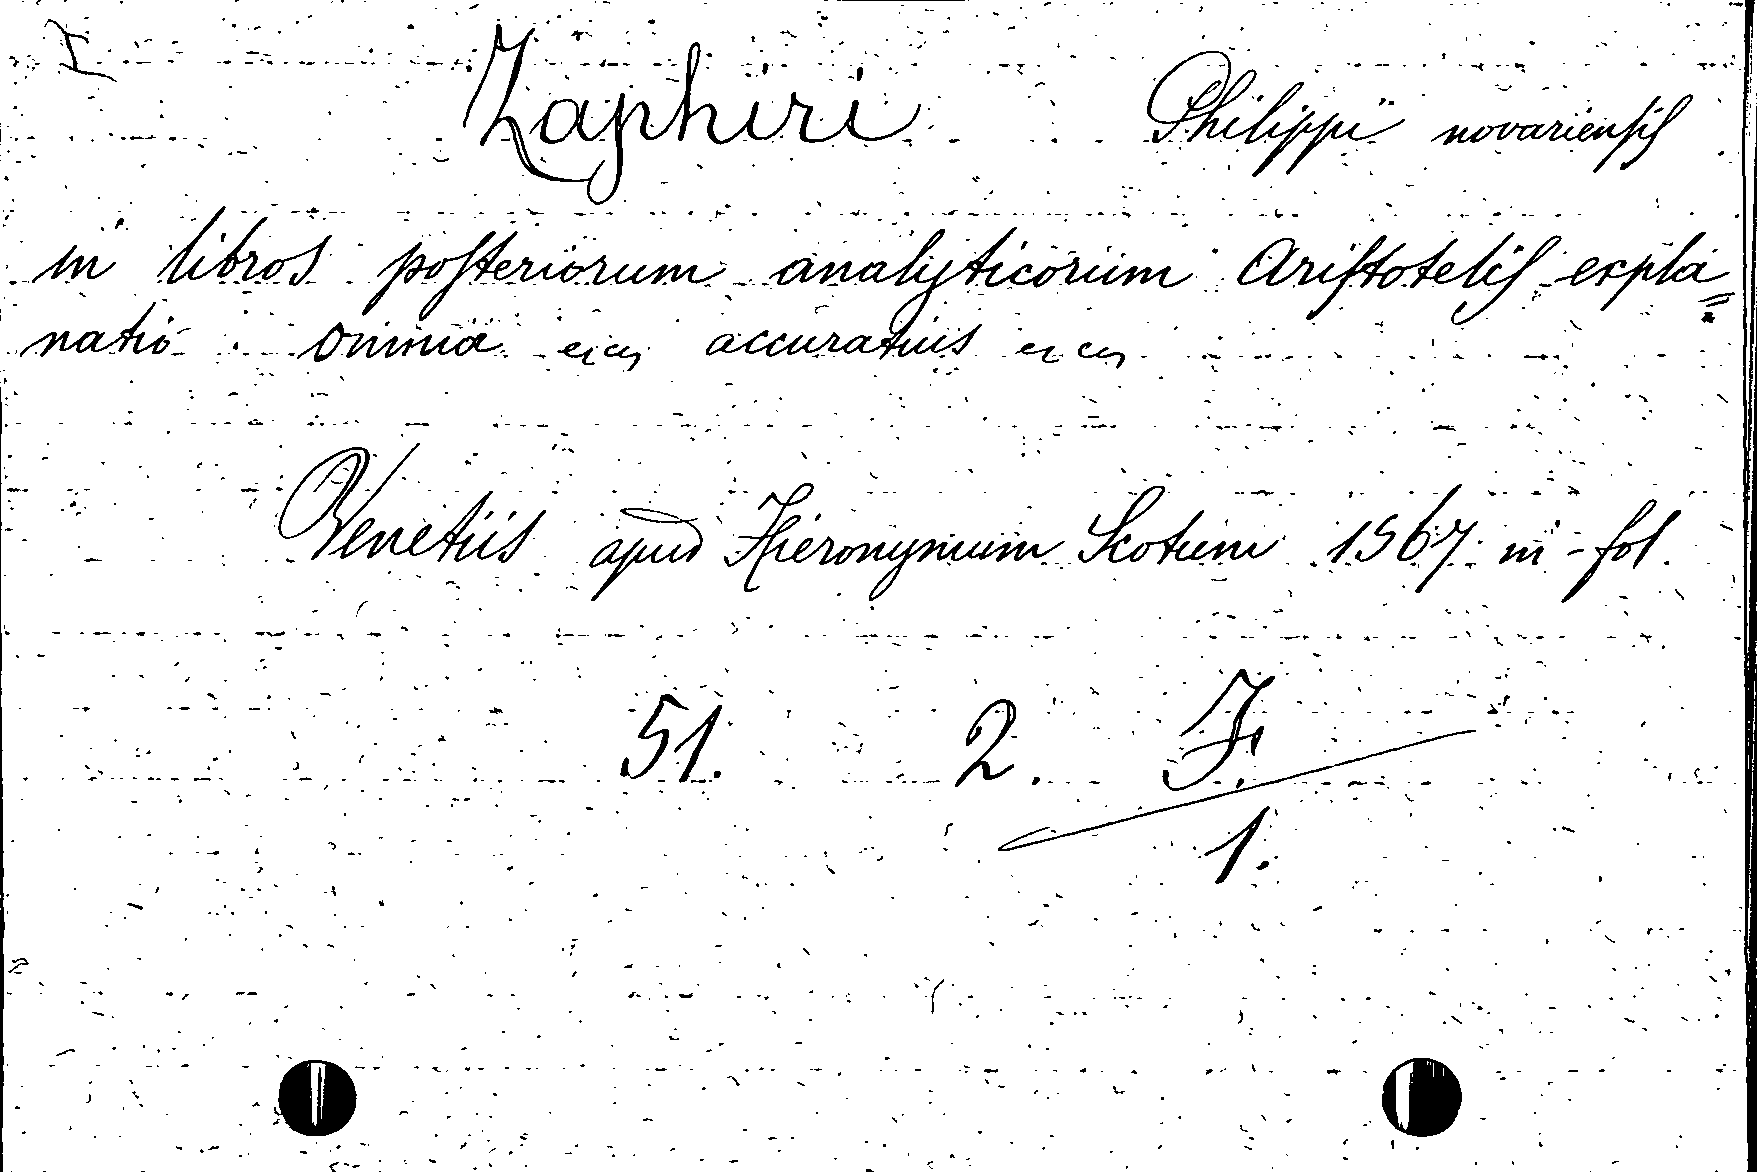 Zaphiri Philippi novariensis
in libros posteriorum analyticorum Aristotelis expla=
natio omnia accuratius
Venetiis apud Hieronymum Scotum 1567. in-fol.
51. 2. F.
1.